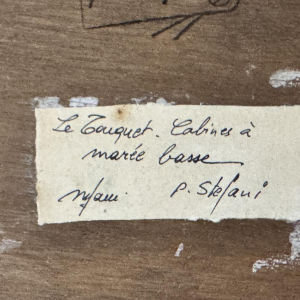 Le Touquet. Cabines à
marée basse
P. Stefani